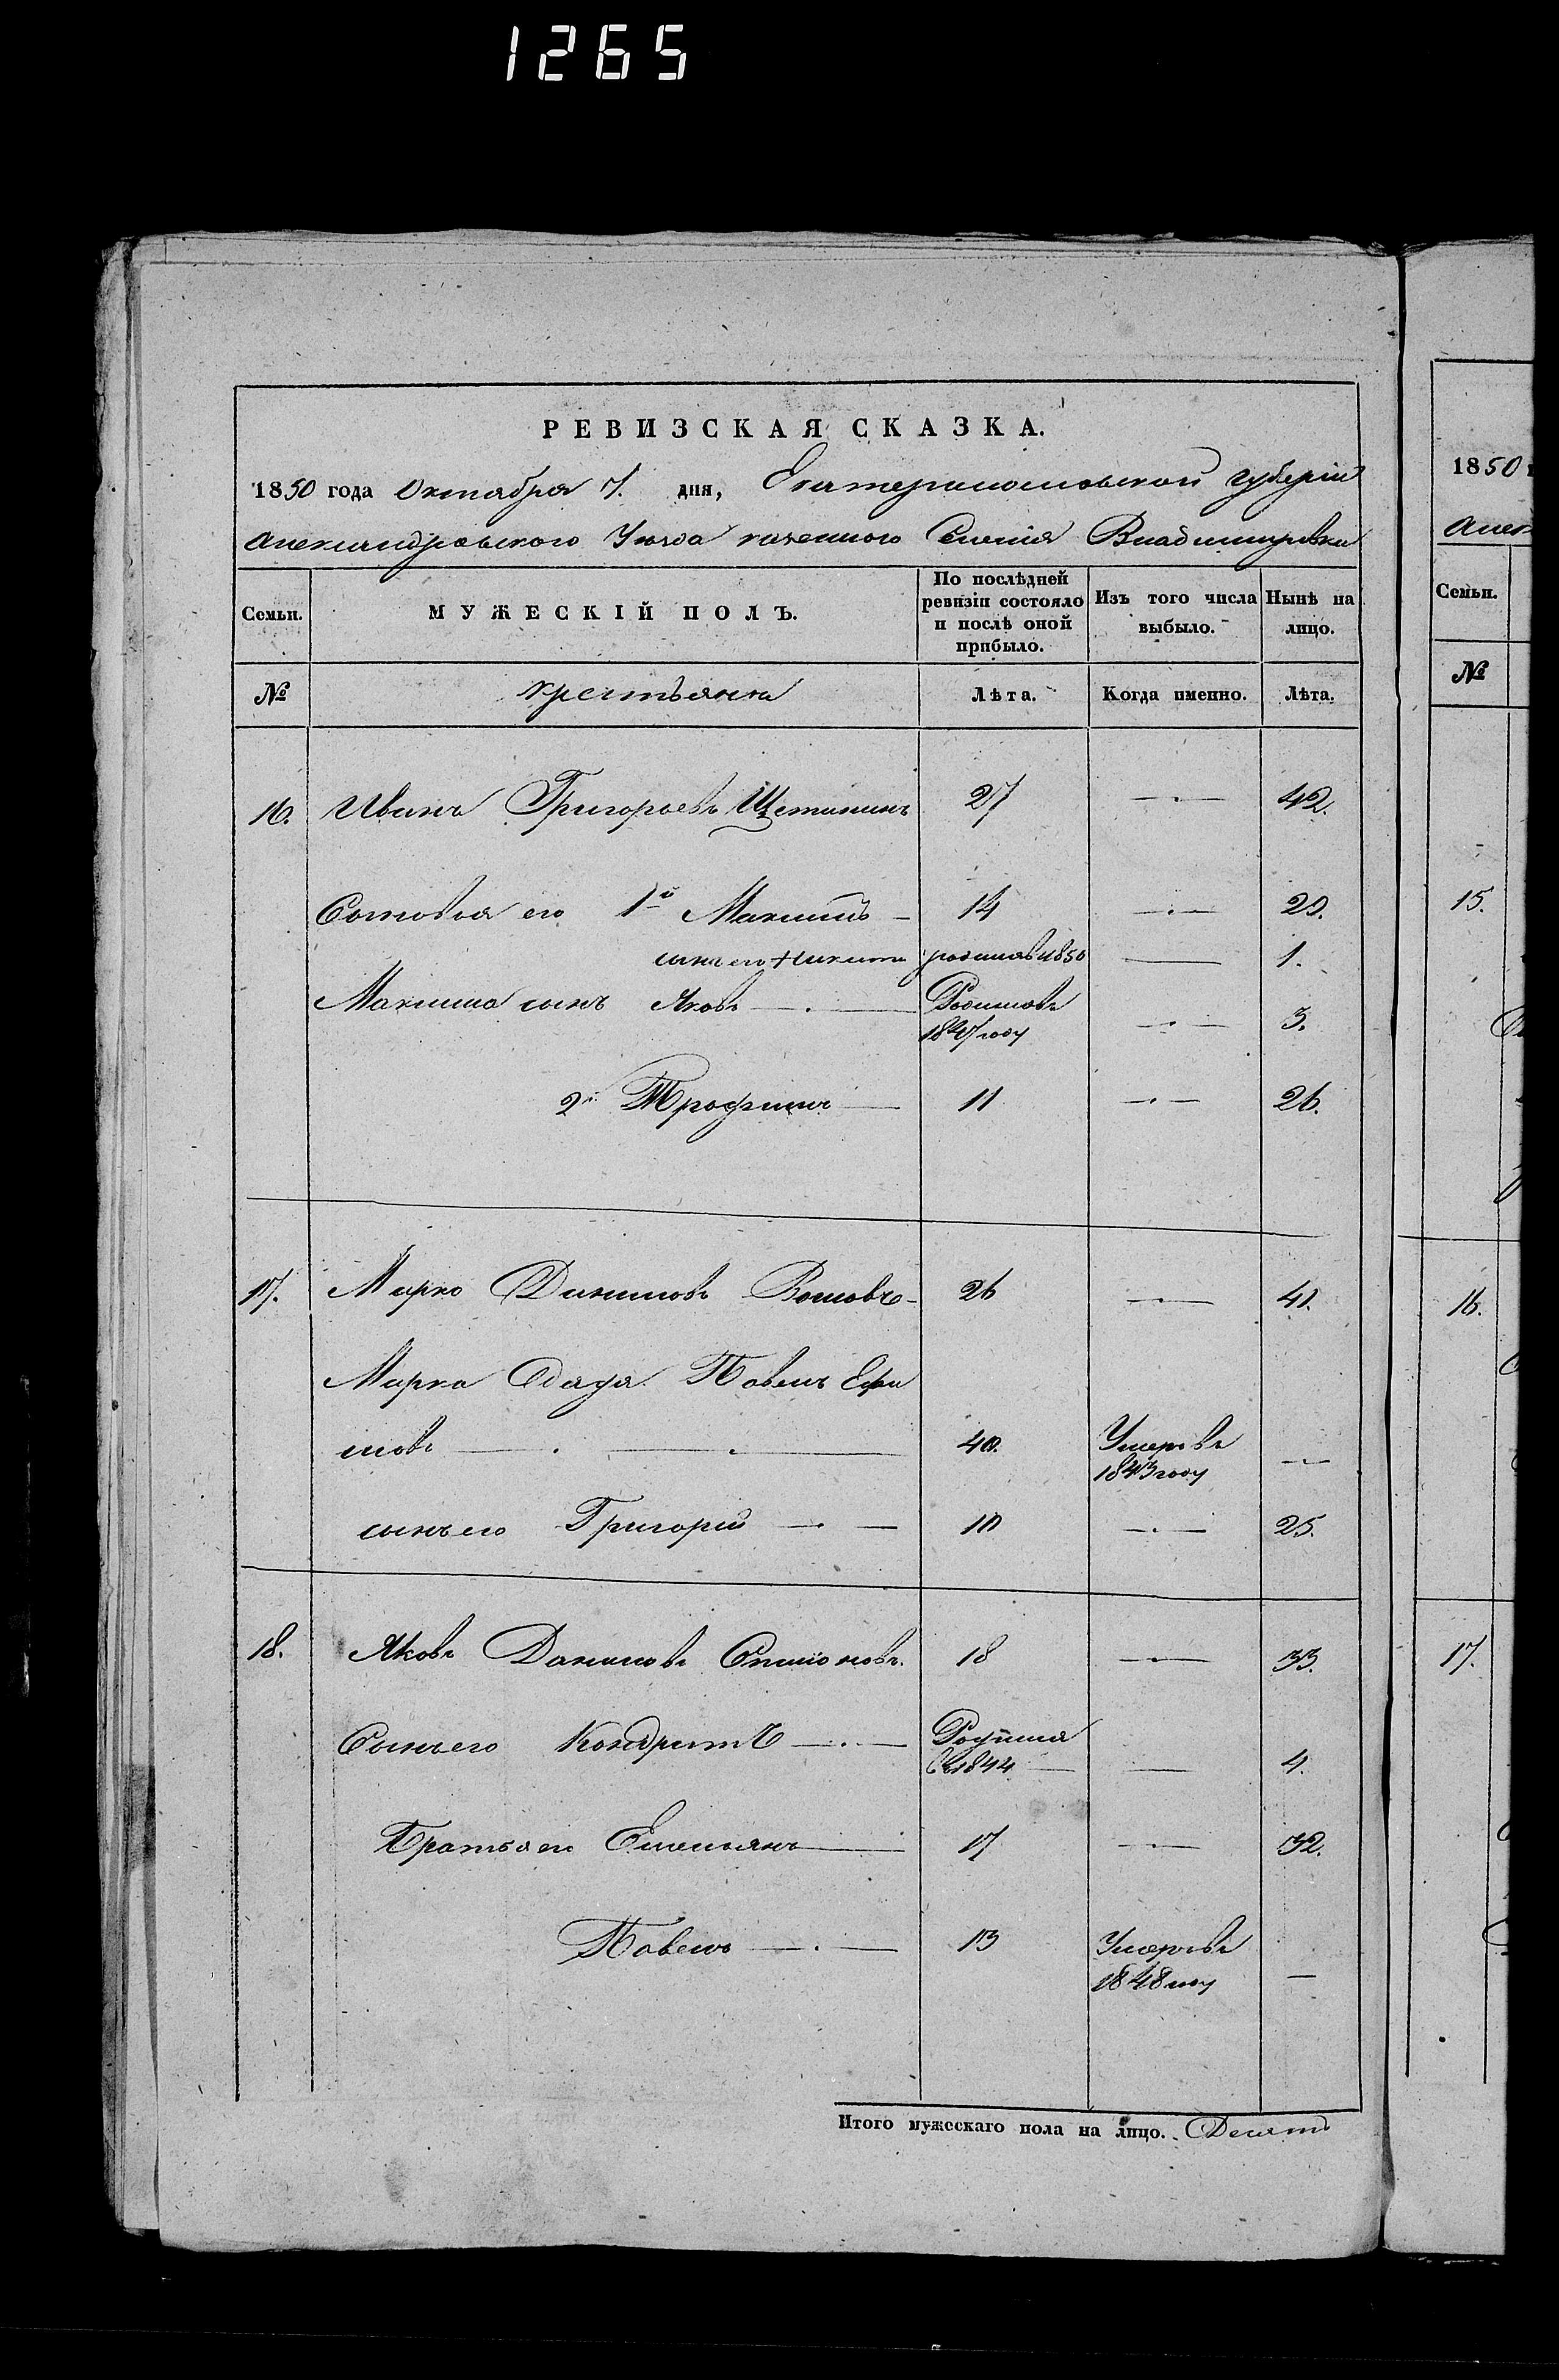 1265
РЕВИЗСКАЯ СКАЗКА.
1850 года Октября 7. дня, Екатеринославской губерніи
Александровского Уезда казенного Селенія Владимировки
Семьи. МУЖЕСКІЙ ПОЛЪ. По послѣдней ревизіи состояло и послѣ оной прибыло. Изъ того числа выбыло. Нынѣ на лицо.
№ Крестьяне Лѣта. Когда именно. Лѣта.
16. Иванъ Григорьевъ Щетининъ 27 — 42.
Сыновья его 1й Максимъ — 14 — 29.
сынъ его Никита родился 1850 — 1.
Максима сынъ Яковъ — Родился въ 1847 году — 3.
2й Трофимъ — 11 — 26.
17. Марко Даниловъ 26 — 41.
Марка дядя Павелъ Ефи
мовъ — 40. Умеръ въ 1843 году —
сынъ его Григорій — 10 — 25.
18. Яковъ Даниловъ 18 — 33.
Сынъ его Кондратъ — Родился въ 1844 — 4.
Братья его Емельянъ — 17 — 32.
Павелъ — 13 Умеръ въ 1848 году —
Итого мужескаго пола на лицо. Десять
1850
Алек
Семьи.
№
15.
16.
17.